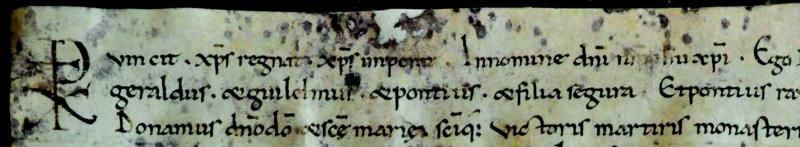 vincit · xp̄s regnat · xp̄s imperat · In nomine dn̄i xp̄i · Ego
geraldus · & guilelmus · & pontius · & filia segura Et pontius
Donamus dn̄o dō & scę marię sc̄iq; victoris martiris monasteri